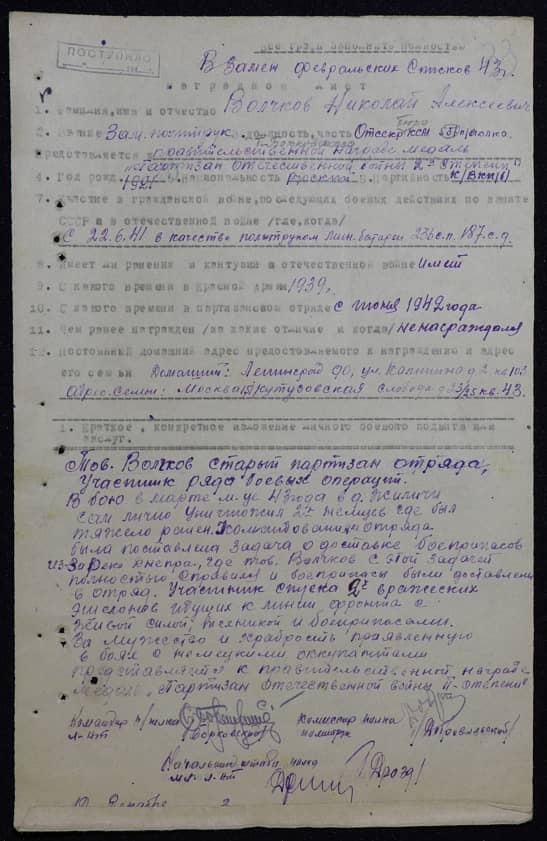 ПОСТУПИЛО
Все графы заполнять полностью
Взамен февральских Списков 43г.
Наградной лист
1. Фамилия, имя и отчество Волчков Николай Алексеевич
2. Звание Зам. политрук. должность, часть Отсекр бюро КСМ полка.
Представляется к правительственной награде медаль
"Партизан отечественной войны 2й степени"
4. Год рожд. 1921 5. Национальность Русский 6. Партийность К/ВКП(б)
7. Участие в гражданской войне, последующих боевых действиях по защите
СССР и в отечественной войне /где, когда/
С 22.6.41 в качестве политруком Лин. батареи 236 с.п. 187 с.д.
8. Имеет ли ранения и контузии в отечественной войне имеет
9. С какого времени в Красной армии 1939г.
10. С какого времени в партизанском отряде с июня 1942 года
11. Чем ранее награжден /за какие отличие и когда/ не награждался
12. Постоянный домашний адрес предоставляемого к награждению и адрес
его семьи Домашний: Ленинград 90, ул. Калинина д 2. кв 103
Адрес. Семьи: Москва Кутузовская слобода д 23/25 кв. 43.
1. Краткое, конкретное изложение личного боевого подвига или
заслуг.
Тов. Волчков старый партизан отряда,
Участник ряда боевых операций.
В бою в марте м-це 43 года в д. Жиличи
сам лично уничтожил 2х немцев где был
тяжело ранен. Командованием отряда
была поставлена задача о доставке боеприпасов
из-за реки Днепра, где тов. Волчков с этой задачей
полностью справился и боеприпасы были доставлены
в отряд. Участник спуска 2х вражеских
эшелонов идущих к линии фронта с
живой силой, техникой и боеприпасами.
За мужество и храбрость проявленную
в боях с немецкими оккупантами
представляется к правительственной награде
Медаль "Партизан Отечественной войны II-степени
Командир п/полка Комиссар полка
Л-нт /Борковский/ политрук
Начальник штаба полка
мл. л-нт /Дрозд/